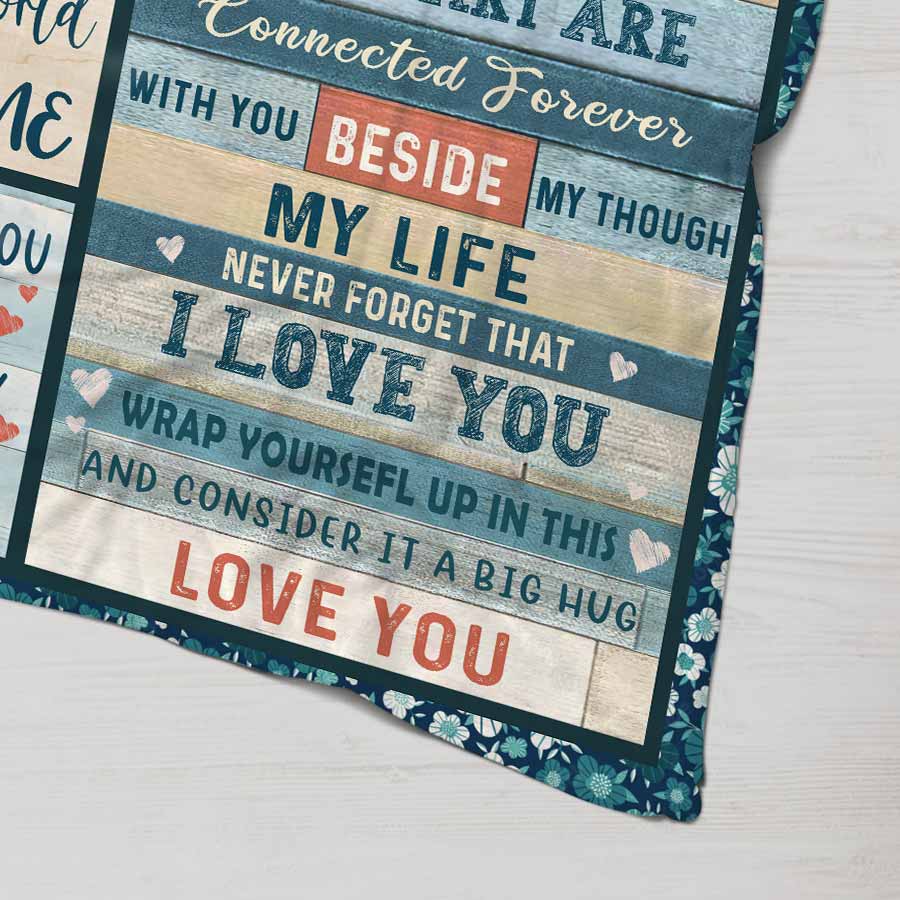 orld
ME
OU
ARE
Connected Forever
WITH YOU BESIDE MY THOUGH
MY LIFE
NEVER FORGET THAT
I LOVE YOU
WRAP YOURSEFL UP IN THIS
AND CONSIDER IT A BIG HUG
LOVE YOU